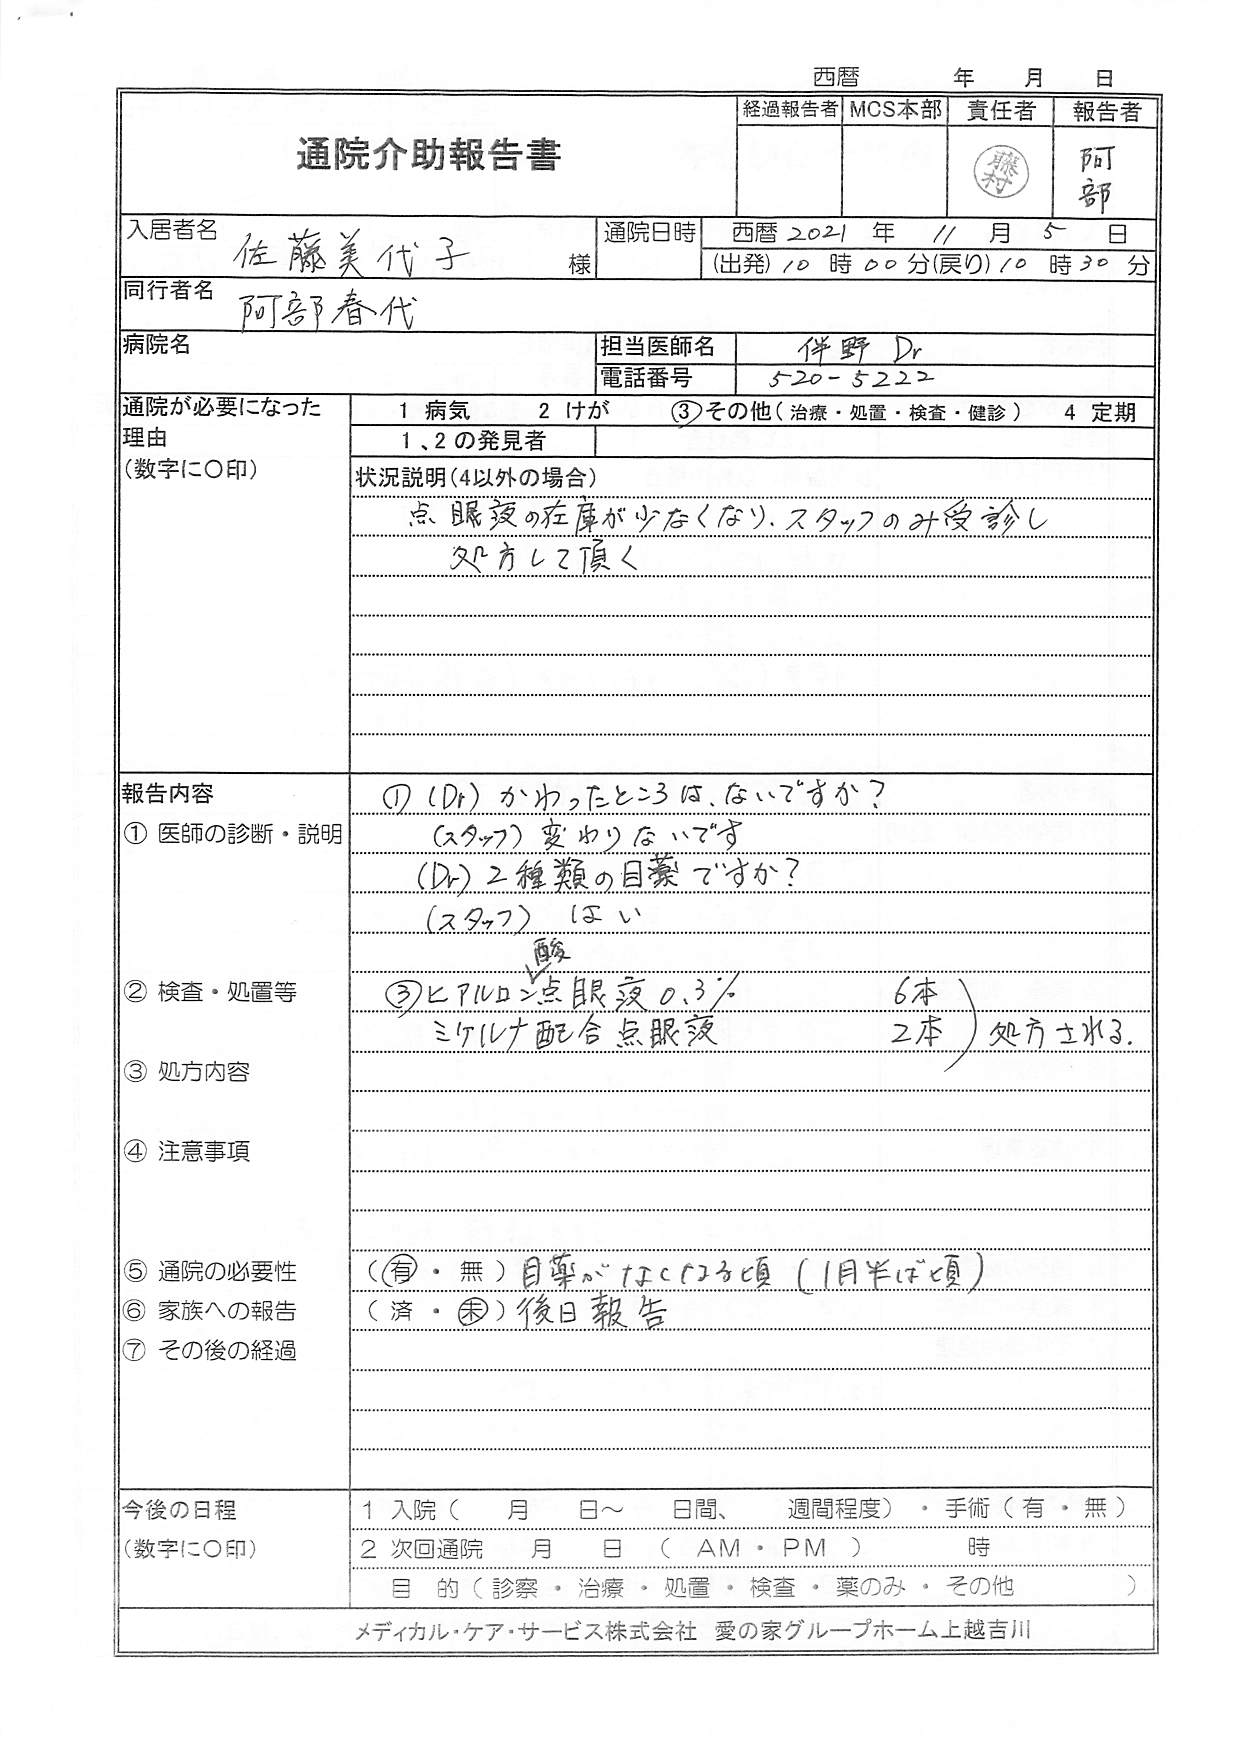 西暦 年 月 日
通院介助報告書
経過報告者 MCS本部 責任者 報告者
藤村
阿部
入居者名 佐藤美代子 様
通院日時 西暦 2021 年 11 月 5 日
(出発) 10 時 00 分(戻り) 10 時 30 分
同行者名 阿部春代
病院名
担当医師名 伴野 Dr
電話番号 520-5222
通院が必要になった
理由
(数字に〇印)
1 病気 2 けが ③その他(治療・処置・検査・健診) 4 定期
1、2の発見者
状況説明(4以外の場合)
点眼液の在庫が少なくなり、スタッフのみ受診し
処方して頂く
報告内容
① (Dr) かわったところは、ないですか?
① 医師の診断・説明
(スタッフ) 変わりないです
(Dr) 2種類の目薬ですか?
(スタッフ) はい
酸
② 検査・処置等
③ヒアルロン点眼液 0.3% 6本
ミケルナ配合点眼液 2本 処方される.
③ 処方内容
④ 注意事項
⑤ 通院の必要性 (有・無) 目薬がなくなる頃 (1月半ば頃)
⑥ 家族への報告 (済・未) 後日報告
⑦ その後の経過
今後の日程
(数字に〇印)
1 入院( 月 日~ 日間、 週間程度) ・ 手術(有・無)
2 次回通院 月 日 ( AM・PM ) 時
目 的(診察・治療・処置・検査・薬のみ・その他 )
メディカル・ケア・サービス株式会社 愛の家グループホーム上越吉川